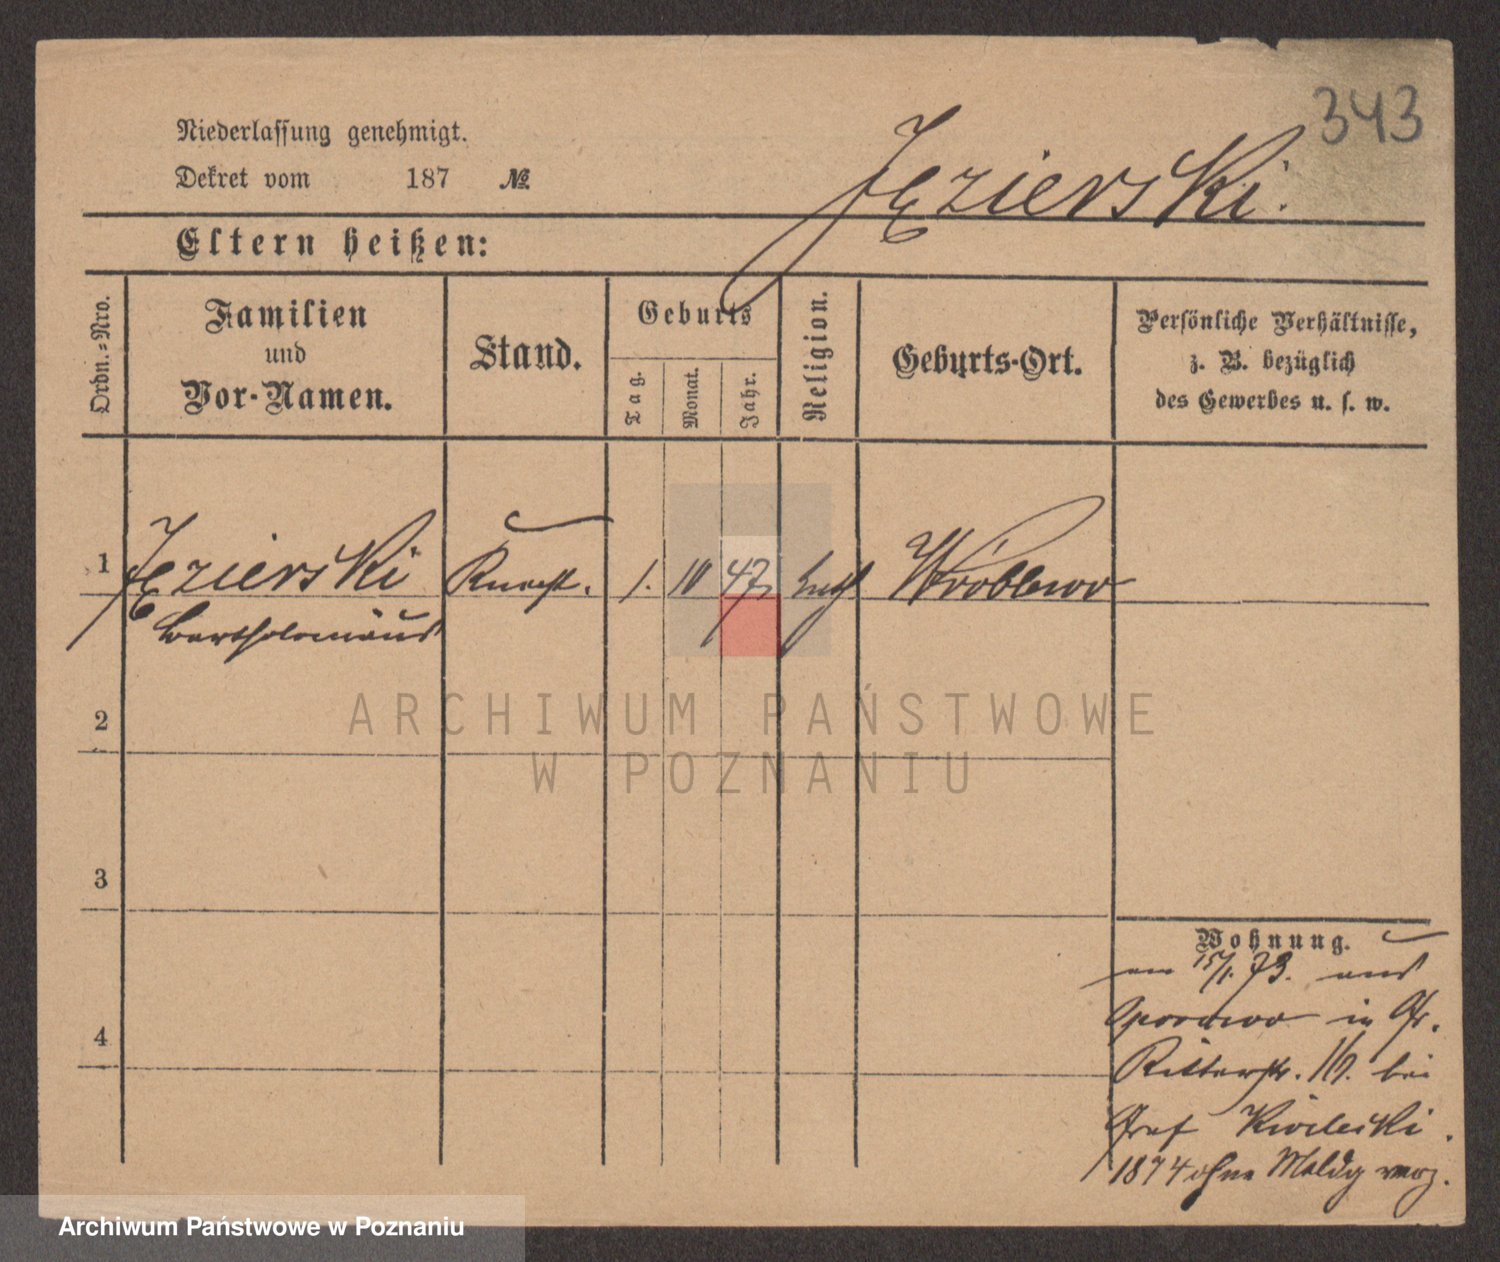 343
Niederlassung genehmigt.
Dekret vom 187 №
Jęzierski.
Eltern heißen:
Ordn.-Nro.
Familien
und
Vor-Namen.
Stand.
Geburts
Tag.
Monat.
Jahr.
Religion.
Geburts-Ort.
Persönliche Verhältnisse,
z. B. bezüglich
des Gewerbes u. s. w.
1 Jęzierski Knecht. 1. 10 47 kath Wróblewo
Bartholomäus
2
ARCHIWUM PAŃSTWOWE
W POZNANIU
3
Wohnung.
am 15/1. 73. aus
in Gr.
4
Ritterstr. 16. bei
Graf Kwilecki.
1874 ohne Meldg verz.
Archiwum Państwowe w Poznaniu